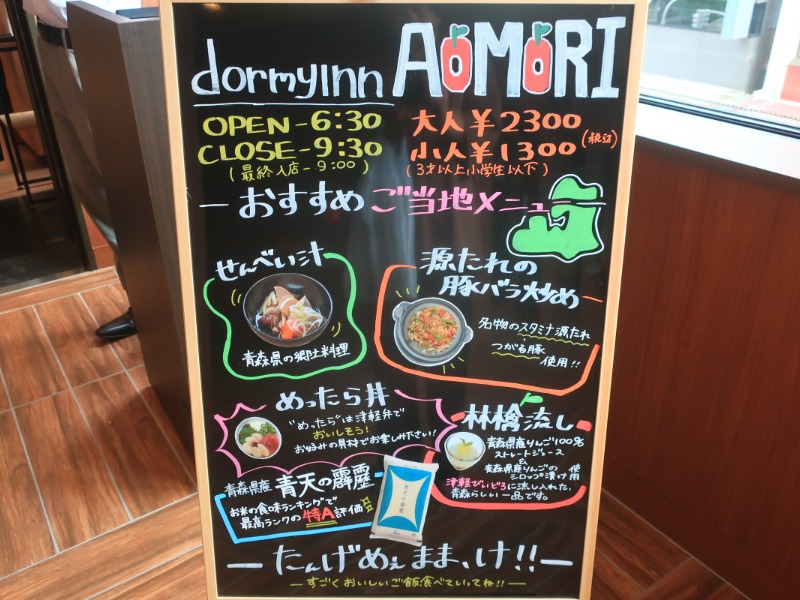 dormyinn AOMORI
OPEN-6:30
CLOSE-9:30
(最終入店-9:00)
大人¥2300
小人¥1300
(税込)
(3才以上小学生以下)
おすすめご当地メニュー
せんべい汁
青森県の郷土料理
源たれの
豚バラ炒め
名物のスタミナ源たれ
・
つがる豚
使用!!
めったら丼
"めったら"は津軽弁で
おいしそう!
お好みの具材でお楽しみ下さい!
林檎流し
青森県産りんご100%
ストレートジュース
&
青森県産りんごの
シロップ漬け
使用
津軽びいどろに流し入れた、
青森らしい一品です。
青森県産 青天の霹靂
お米の食味ランキングで
最高ランクの特A評価
青天の霹靂
たんげめぇまま、け!!
すごくおいしいご飯食べていってね!!